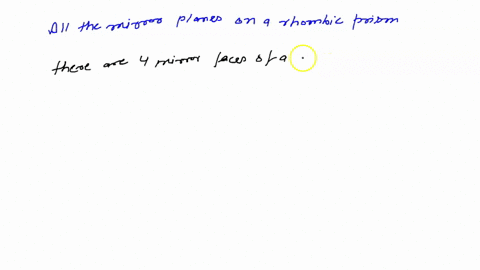 All the mirror planes on a rhombic prism
there are 4 mirror faces of a